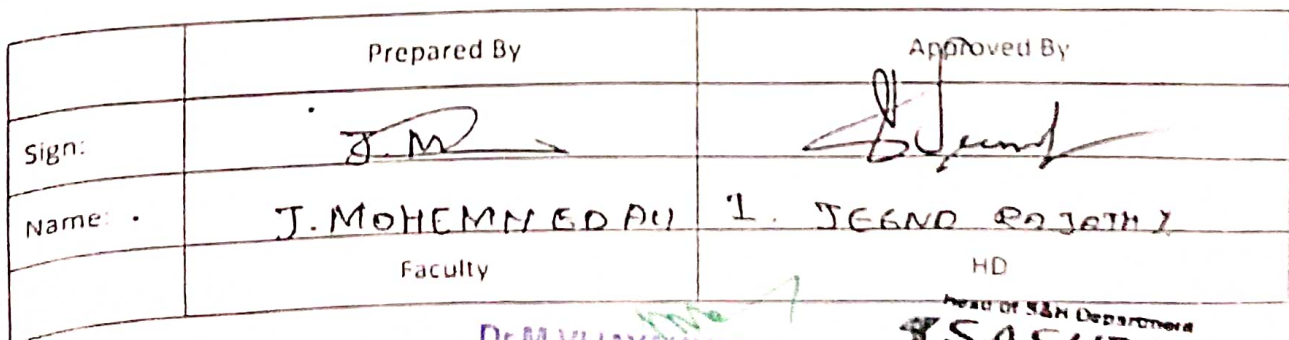 Prepared By Approved By
Sign: J.M
Name: J. MOHEMMED ALI 1. JEGNO
Faculty HD
Head of S&H Department
Dr.M.